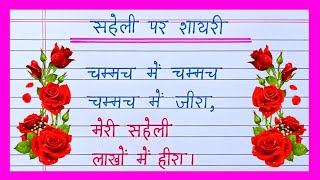 सहेली पर शायरी
चम्मच में चम्मच
चम्मच में जीरा,
मेरी सहेली
लाखों में हीरा।